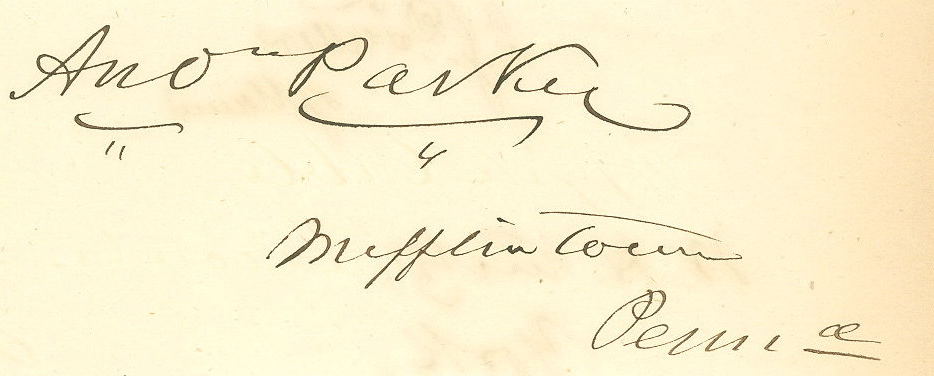 Andw Parker
" "
Mifflintown
Pennᵃ